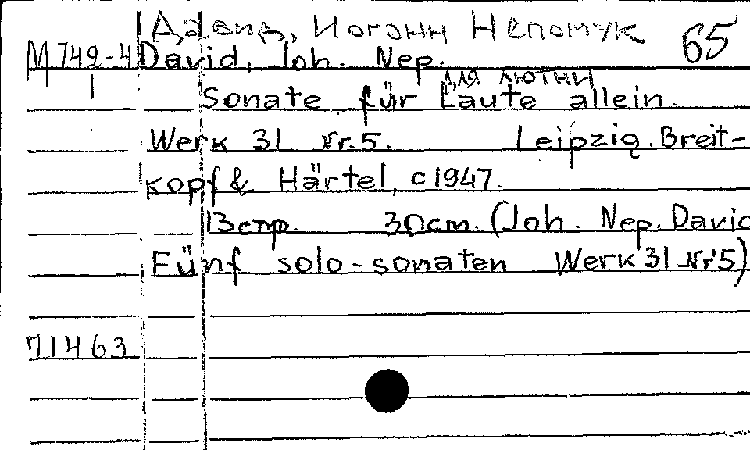 Давид, Иоганн Непомук 65
М 749-4 David, Joh. Nep.
1 для лютни
Sonate für Laute allein.
Werk 31 Nr. 5. Leipzig. Breit-
kopf & Härtel, c 1947.
13 стр. 30 cm. (Joh. Nep. David
Fünf solo-sonaten Werk 31 Nr 5)
71463